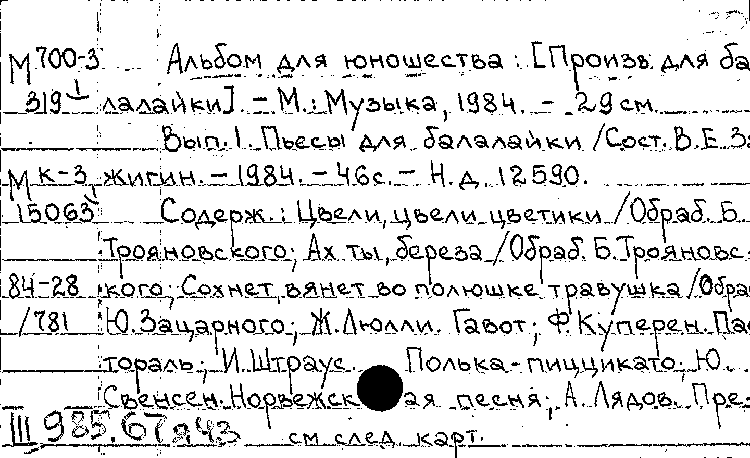 М 700-3 Альбом для юношества : [Произв. для ба
319 лалайки]. – М. : Музыка, 1984. – 29 см
Вып. 1. Пьесы для балалайки / Сост. В. Е. З
М К-3 жигин. – 1984. – 46 с. – Н. д. 12590.
15063 Содерж.: Цвели, цвели цветики / Обраб. Б.
Трояновского; Ах ты, береза / Обраб. Б. Трояновс
84-28 кого; Сохнет, вянет во полюшке травушка / Обра
/781 Ю. Зацарного; Ж. Люлли. Гавот; Ф. Куперен. Пас
тораль; И. Штраус. Полька-пиццикато; Ю.
Свенсен. Норвежск ая песня; А. Лядов. Пре-
III 985.67 я43 см след. карт.